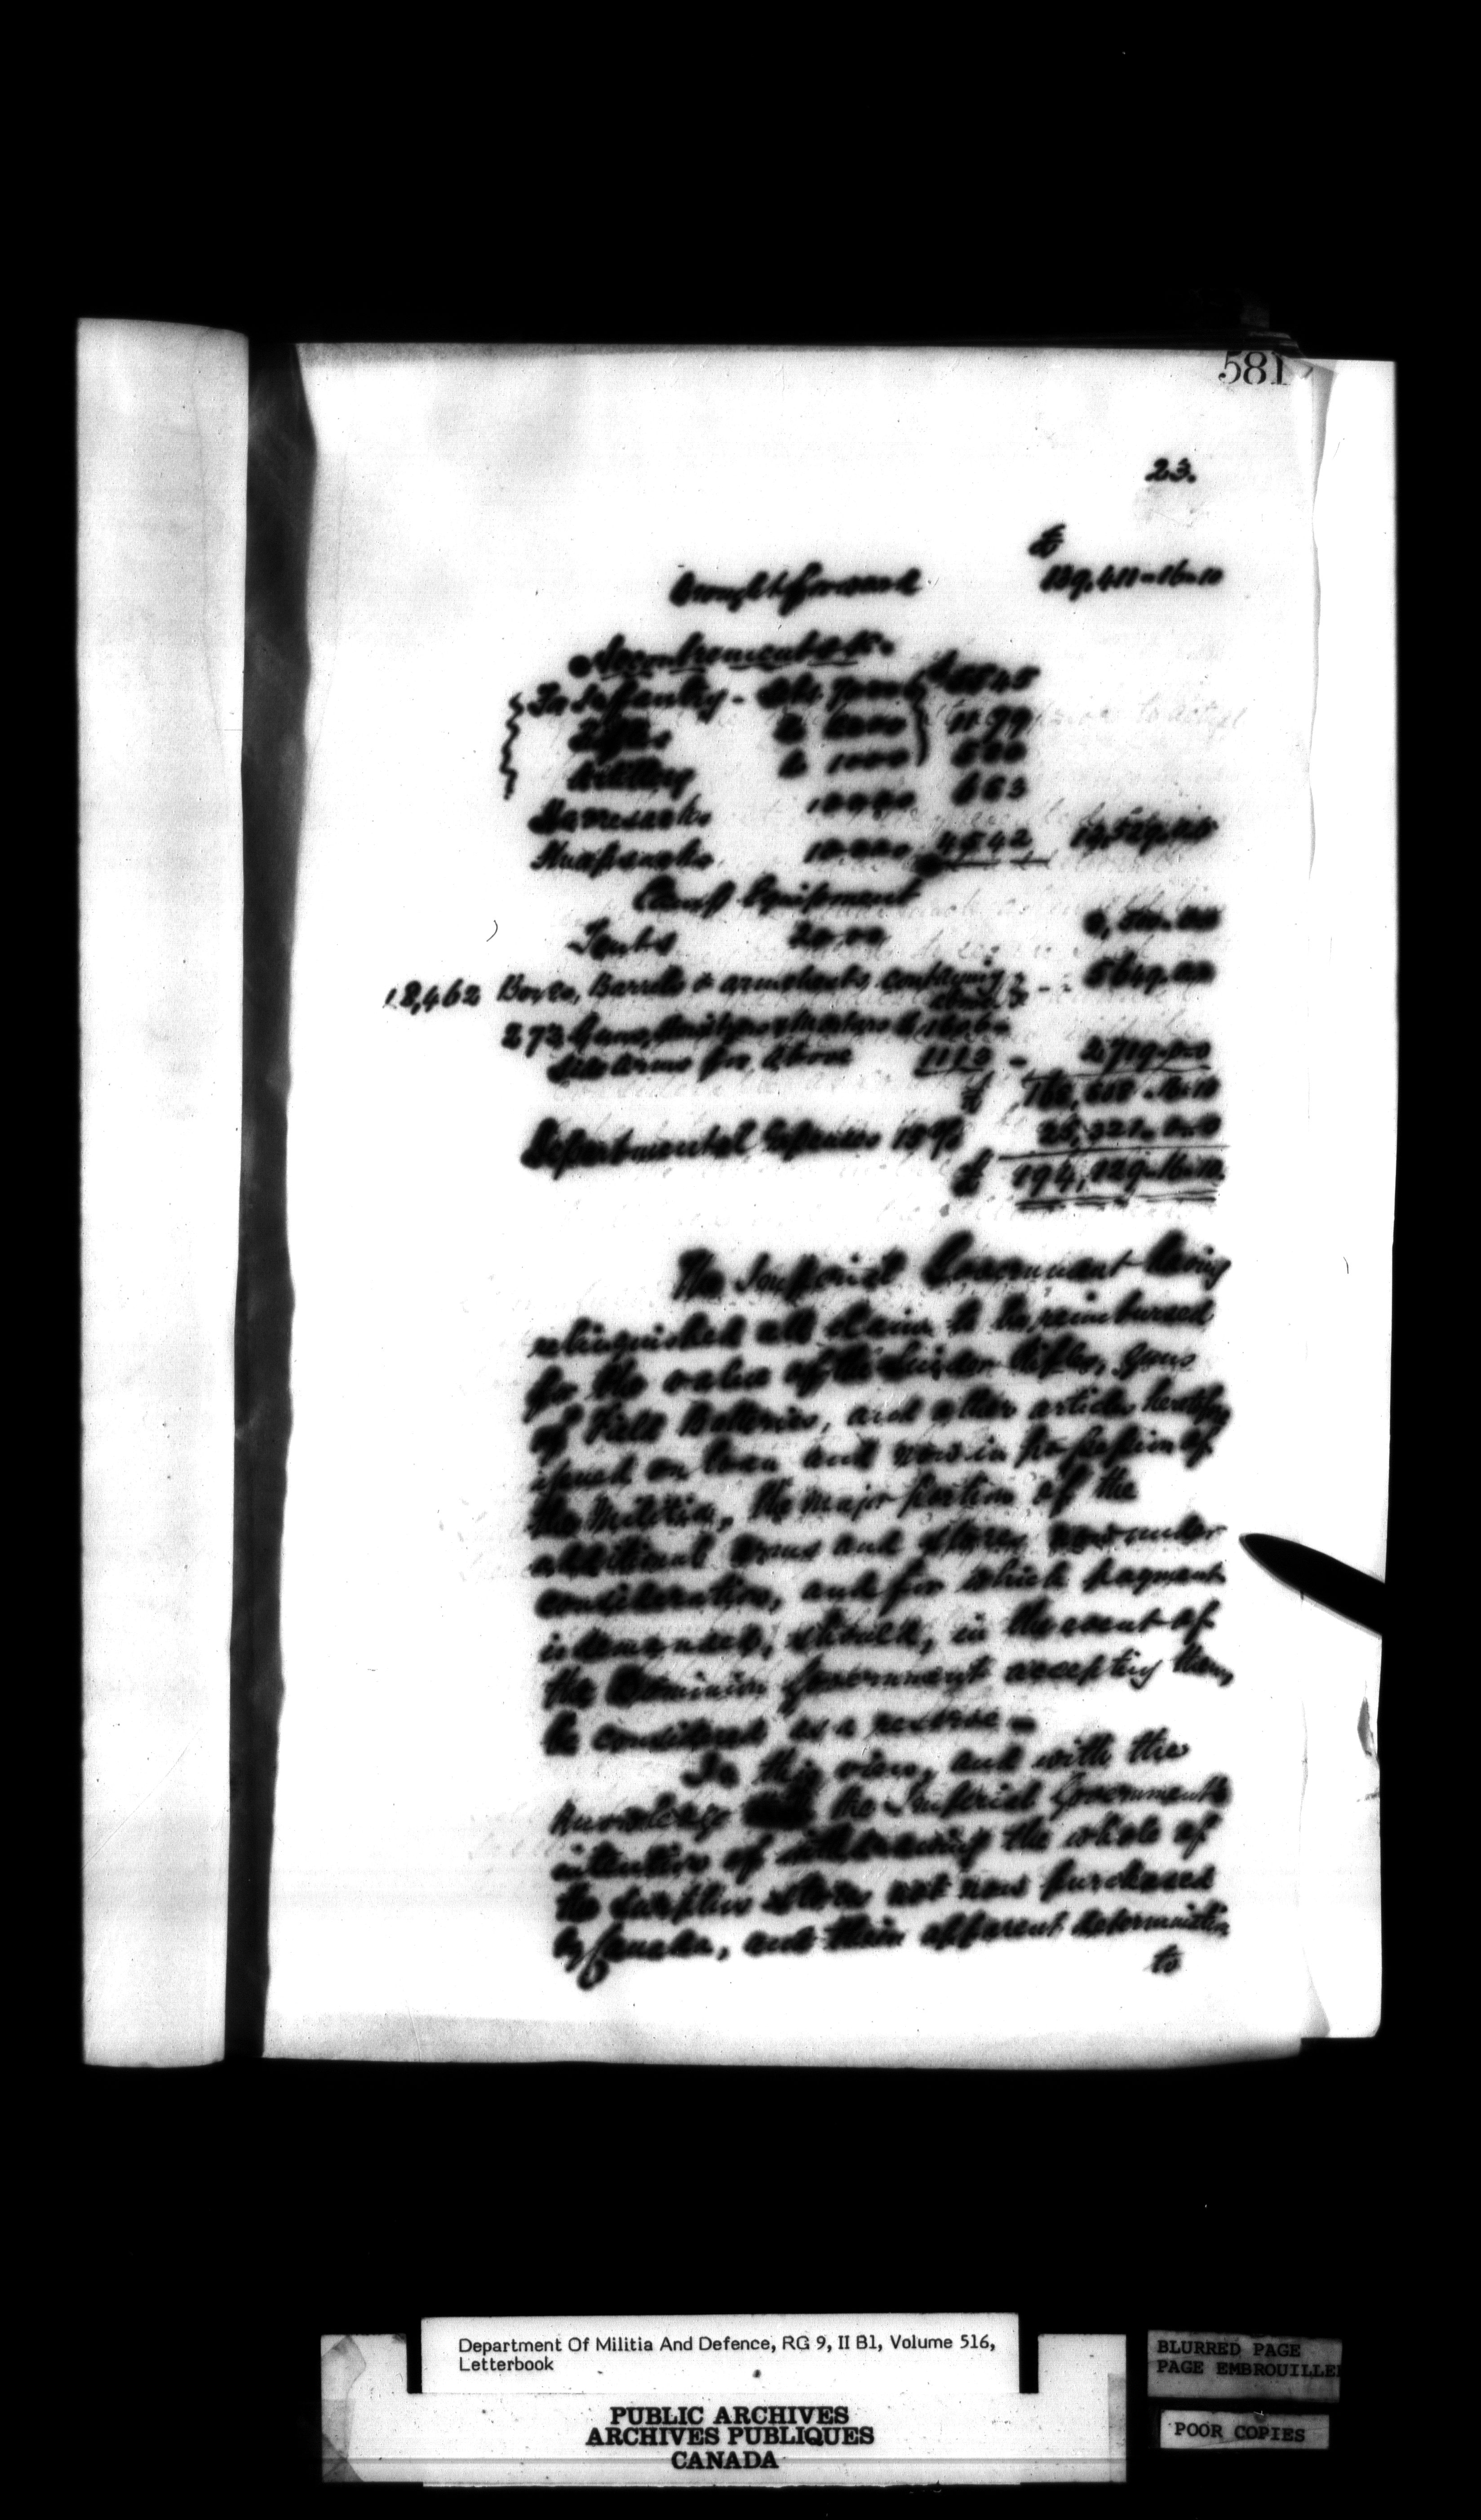 581
23.
£
Brought forward 139,411-16-10
Accoutrements &c.
For Infantry - Sets 7000 £ 6545
Rifles do 2000 1179
Artillery do 1000 580
Haversacks 10000 683
Knapsacks 10.000 4542
Camp Equipment
Tents 2000
18,462 Boxes, Barrels & containing
273 Guns, &
Side arms for above 1113 -
£ 16-10
Departmental Expenses
£ 194,129-16-10
The Imperial Government having
relinquished all claim to be reimbursed
for the value of the Snider Rifles, guns
of Field Batteries, and other articles heretofore
issued on loan and now in possession of
the Militia, the major portion of the
additional arms and stores now under
consideration, and for which payment
is demanded, should, in the event of
the Dominion Government accepting them,
be considered as a reserve -
In this view, and with the
knowledge the Imperial Government's
intention of withdrawing the whole of
the surplus stores not now purchased
by Canada, and their apparent determination
to
Department Of Militia And Defence, RG 9, II B1, Volume 516,
Letterbook
PUBLIC ARCHIVES
ARCHIVES PUBLIQUES
CANADA
BLURRED PAGE
PAGE EMBROUILLEE
POOR COPIES